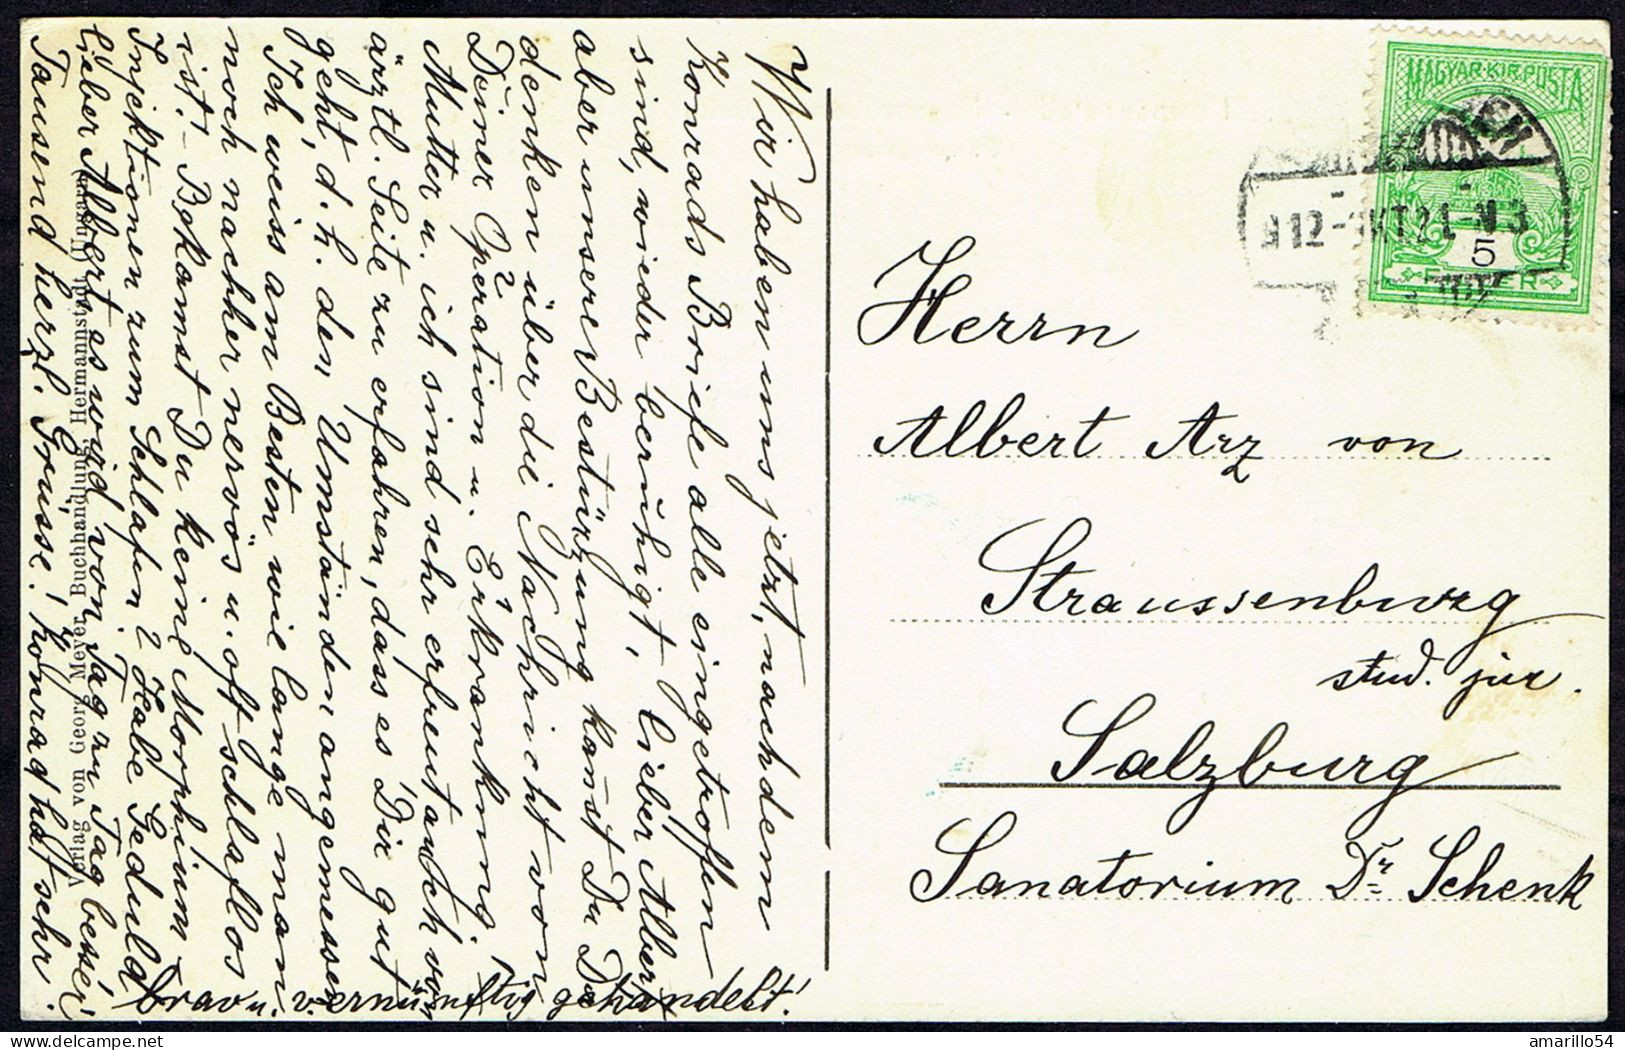 Wir haben uns jetzt, nachdem
Konrads Briefe alle eingetroffen
sind, wieder beruhigt, lieber Albert,
aber unsere Bestürzung kanst Du Dir
denken über die Nachricht von
Deiner Operation u. Erkrankung.
Mutter u. ich sind sehr erfreut auch von
ärztl. Seite zu erfahren, dass es Dir gut
geht, d. h. den Umständen angemessen
Ich weiss am Besten wie lange man
noch nachher nervös u. oft schlaflos
ist. - Bekomst Du keine Morphium
Injektionen zum Schlafen? Habe Geduld
lieber Albert es wird von Tag zu Tag besser
Tausend herzl. Grüsse! Konrad hat sehr
brav u. vernünftig gehandelt!
Verlag von Georg Meyer, Buchhandlung, Hermannstadt
MAGYAR·KIR·POSTA
5
Herrn
Albert Arz von
Straussenburg
stud. jur.
Salzburg
Sanatorium Dr Schenk
amarillo54